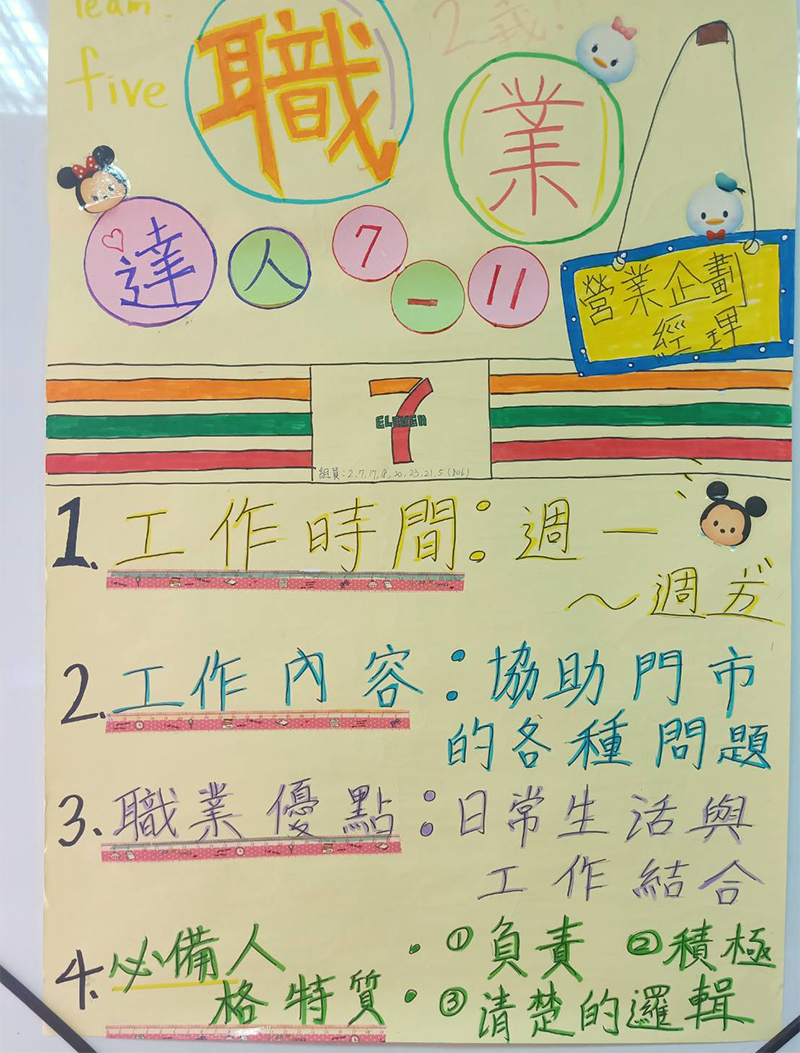 Team.
five
職業
達人7-11
營業企劃
經理
7
ELEVEN
組員:2,7,17,18,20,23,21,5(806)
1.工作時間:週一
~週五
2.工作內容:協助門市
的各種問題
3.職業優點:日常生活與
工作結合
4.必備人格特質:①負責 ②積極
③清楚的邏輯